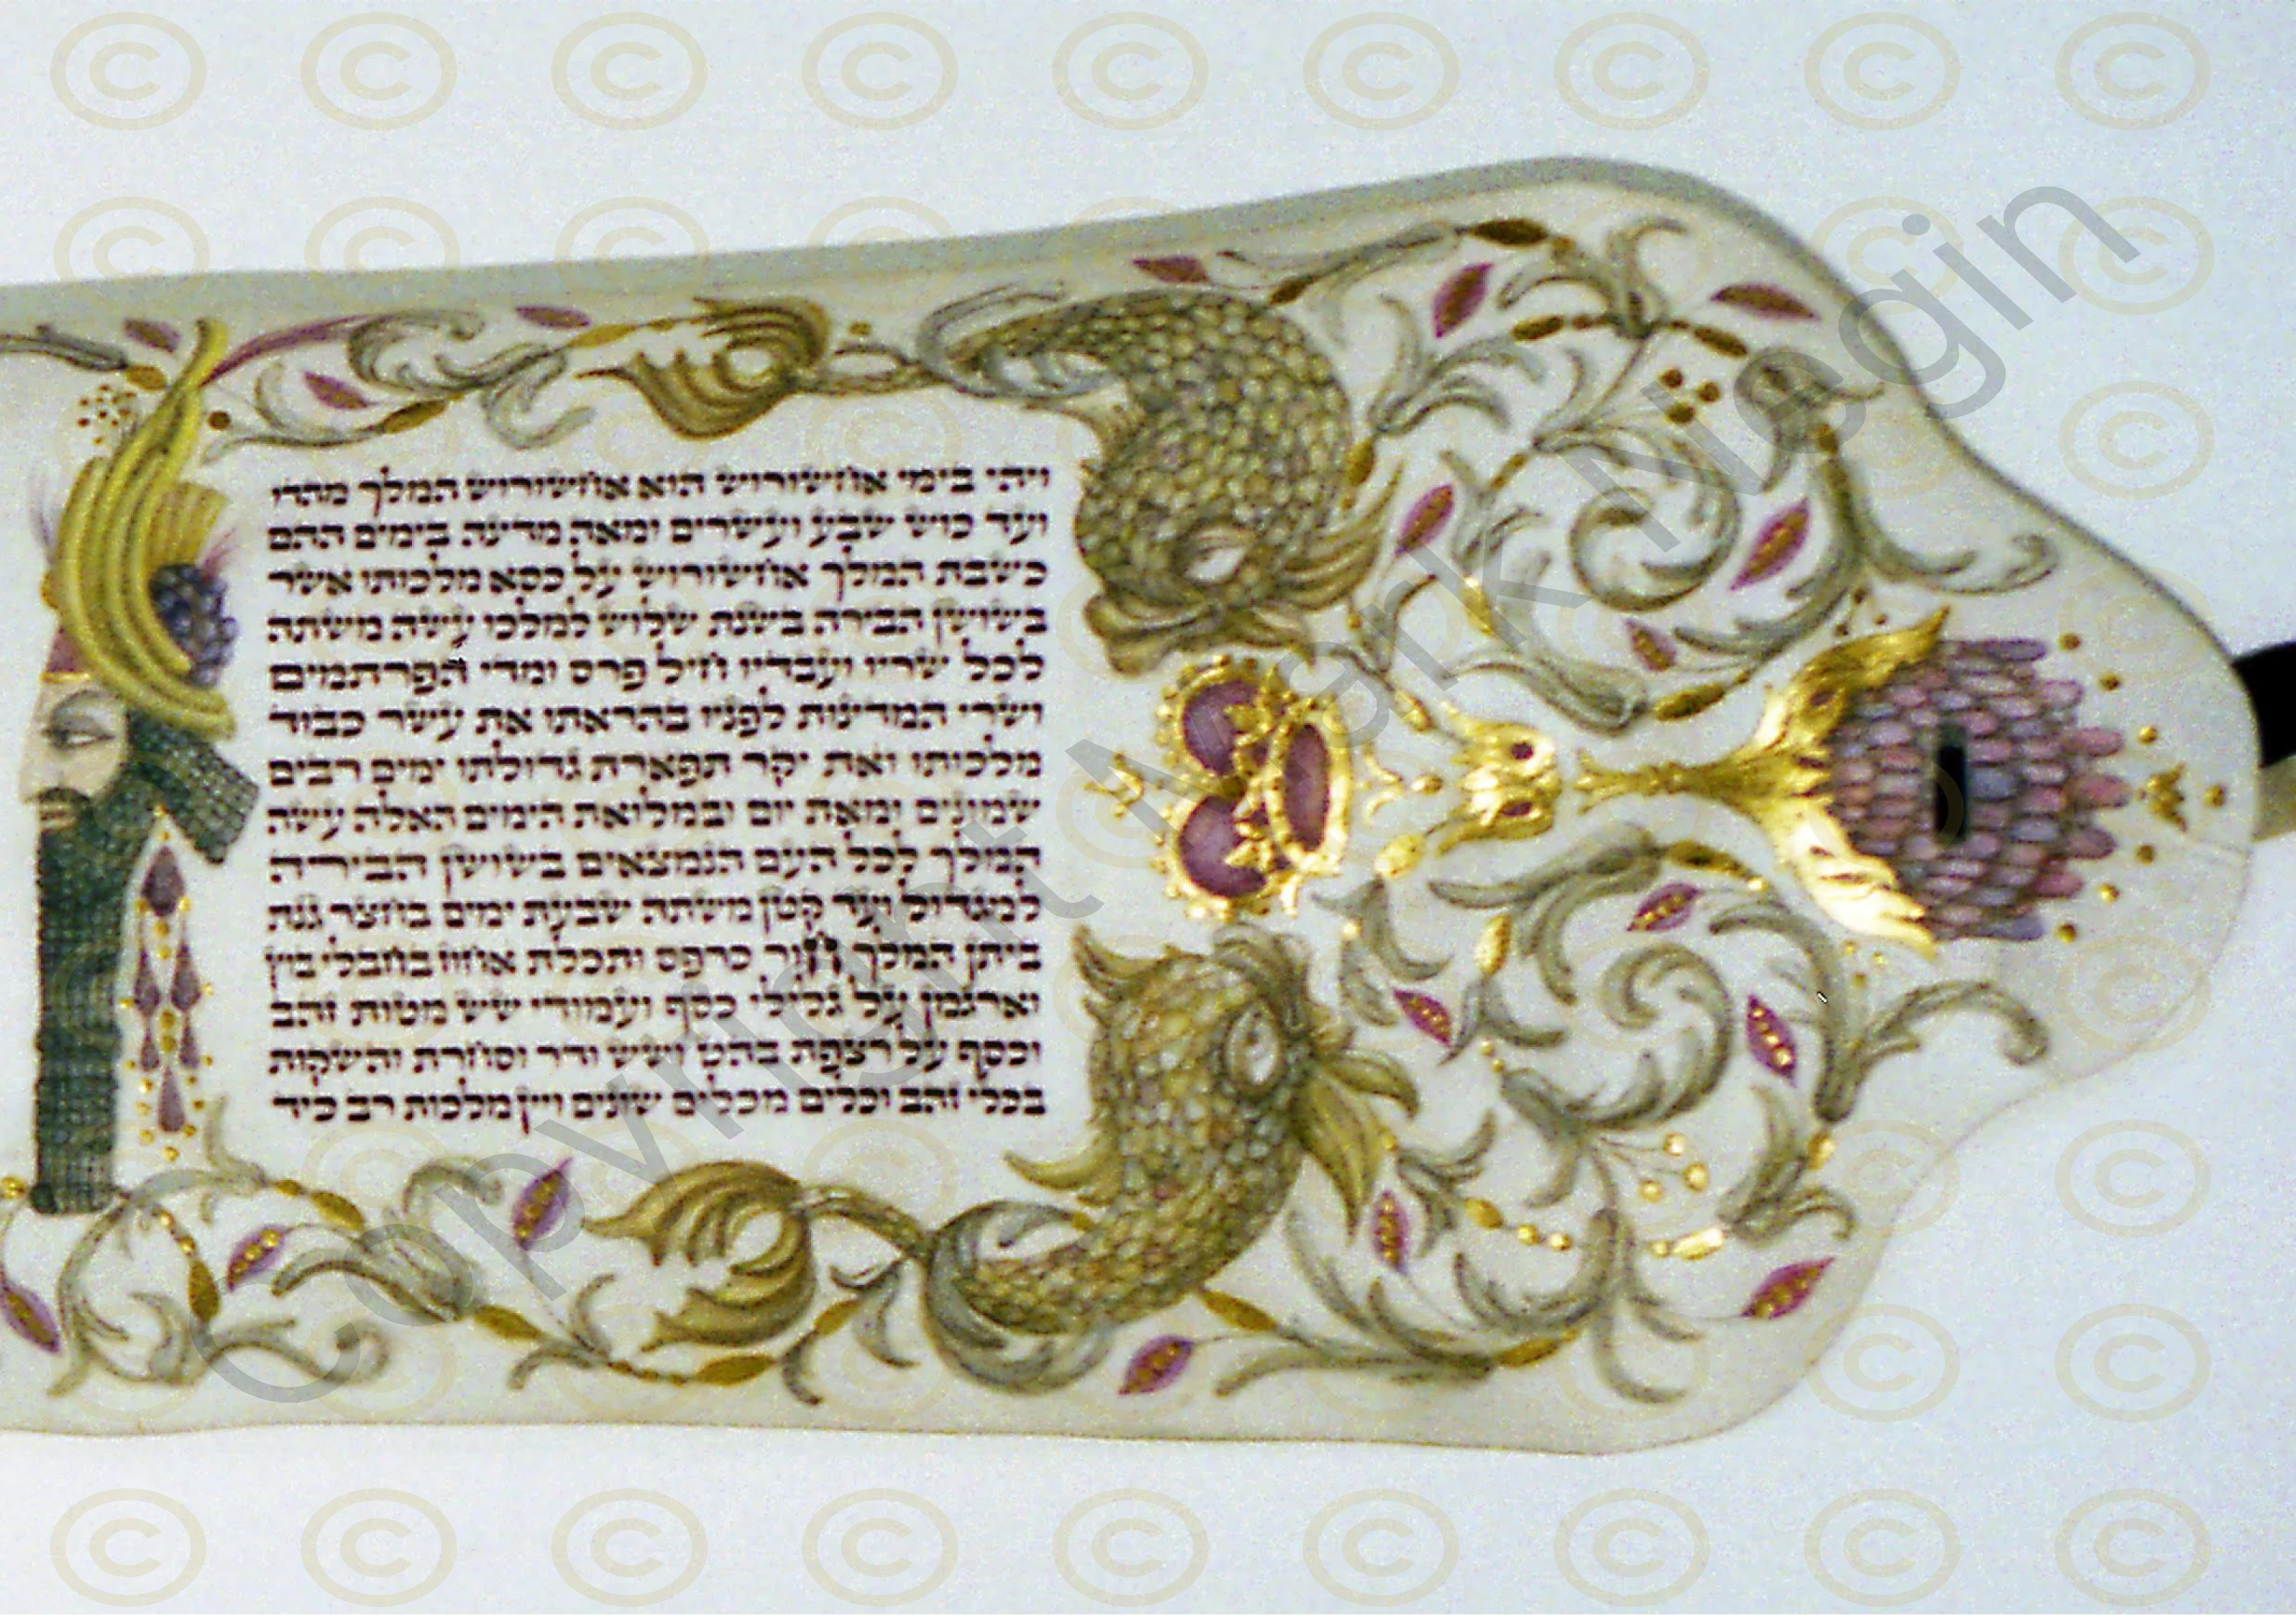 ויהי בימי אחשורוש הוא אחשורוש המלך מהדו
ועד כוש שבע ועשרים ומאה מדינה בימים ההם
כשבת המלך אחשורוש על כסא מלכותו אשר
בשושן הבירה בשנת שלוש למלכו עשה משתה
לכל שריו ועבדיו חיל פרס ומדי הפרתמים
ושרי המדינות לפניו בהראתו את עשר כבוד
מלכותו ואת יקר תפארת גדולתו ימים רבים
שמונים ומאת יום ובמלואת הימים האלה עשה
המלך לכל העם הנמצאים בשושן הבירה
למגדול ועד קטן משתה שבעת ימים בחצר גנת
ביתן המלך חור כרפס ותכלת אחוז בחבלי בוץ
וארגמן על גלילי כסף ועמודי שש מטות זהב
וכסף על רצפת בהט ושש ודר וסחרת והשקות
בכלי זהב וכלים מכלים שונים ויין מלכות רב כיד
Copyright Mark Negin